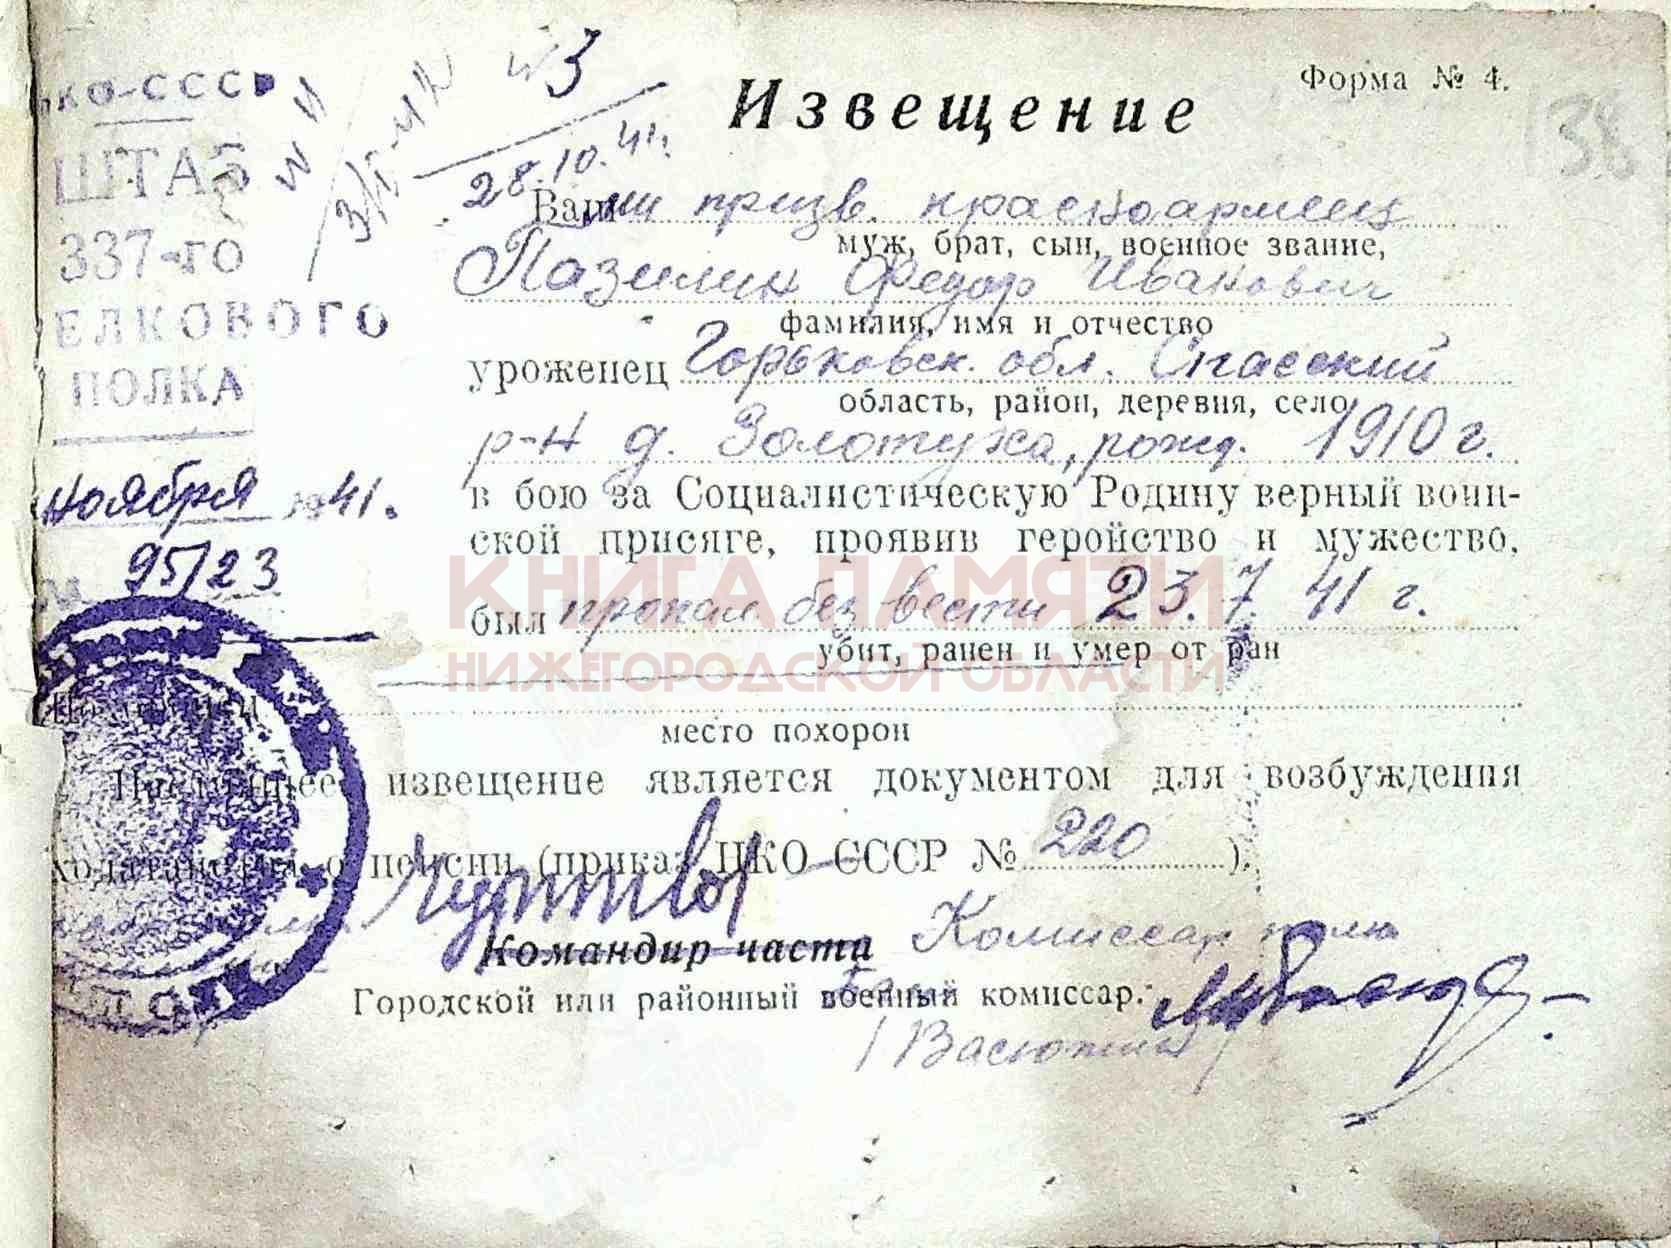 НКО-СССР
ШТАБ
337-го
ЕЛКОВОГО
ПОЛКА
ноября 1941.
№ 95/23
28.10.41.
Форма № 4.
138
Извещение
Ваш призв. красноармеец
муж, брат, сын, военное звание,
Пазилин Федор Иванович
фамилия, имя и отчество
уроженец Горьковск. обл. Спасский
область, район, деревня, село
р-н д. Золотуха, рожд. 1910 г.
в бою за Социалистическую Родину верный воин-
ской присяге, проявив геройство и мужество,
был пропал без вести 23.7.41 г.
убит, ранен и умер от ран
КНИГА ПАМЯТИ
НИЖЕГОРОДСКОЙ ОБЛАСТИ
Похоронен
место похорон
Настоящее извещение является документом для возбуждения
ходатайства о пенсии (приказ НКО СССР № 220 ).
Командир части Комиссар полка
Городской или районный военный комиссар.
/Васютин/